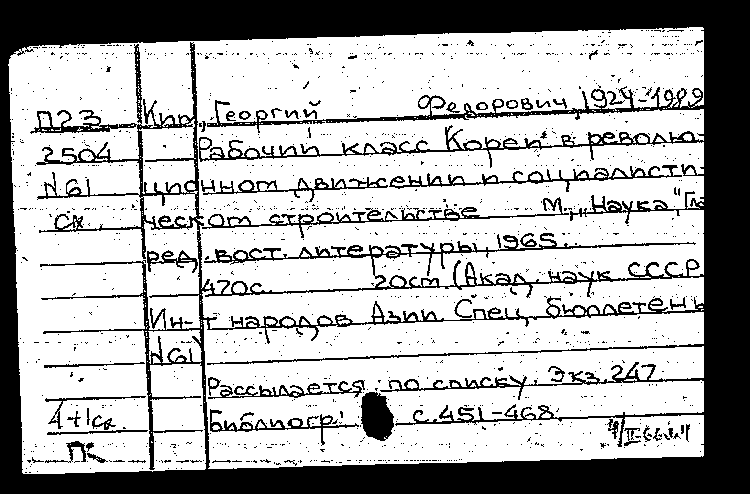 П23 Ким, Георгий Федорович, 1924-1989
2504 Рабочий класс Кореи в револю-
N61 ционном движении и социалисти-
ск. ческом строительстве М., "Наука", Гл
ред. вост. литературы, 1965.
470с. 20см (Акад. наук СССР.
Ин-т народов Азии. Спец. бюллетень
N61)
Рассылается по списку. Экз. 247
4+1ск. Библиогр: с.451-468.